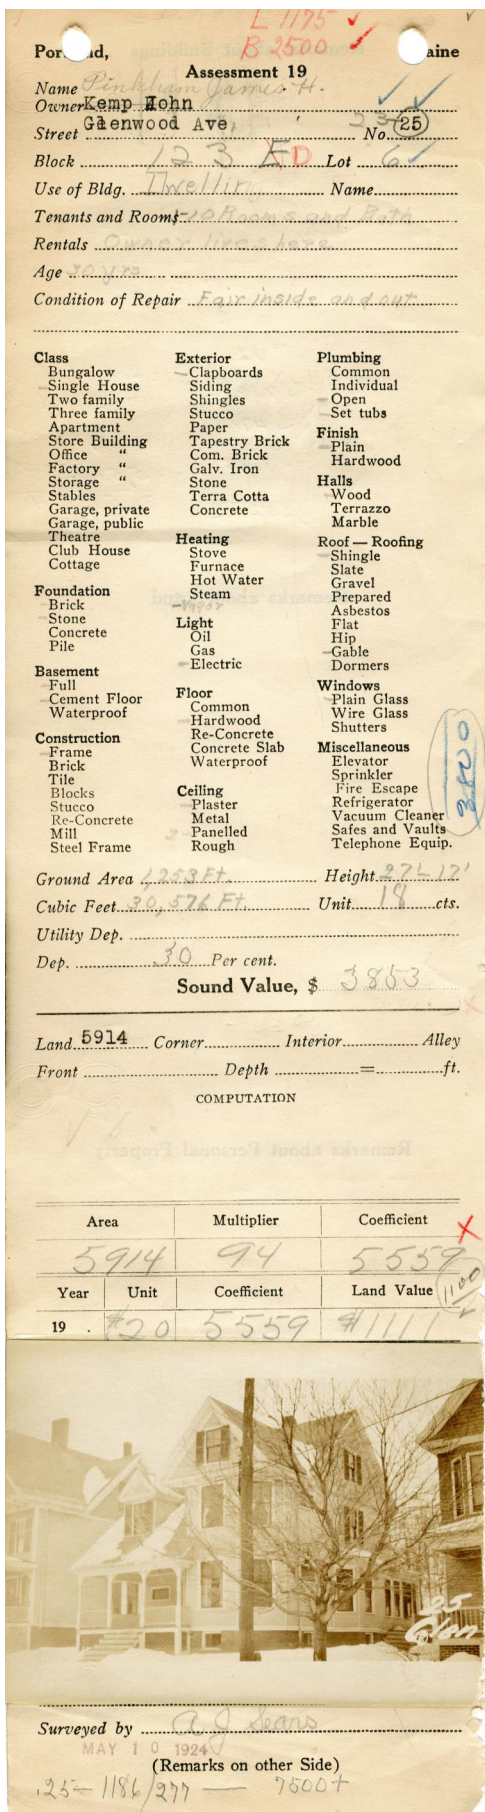 L 1175
B 2500
Portland, Maine
Assessment 19
Name Pinkham James H.
Owner Kemp John
Street Glenwood Ave, 23-25 No.
Block 123 E D Lot 6
Use of Bldg. Dwelling Name
Tenants and Rooms 1-10 Rooms and Bath
Rentals Owner lives here
Age 30 yrs
Condition of Repair Fair inside and out
Class
Bungalow
Single House
Two family
Three family
Apartment
Store Building
Office "
Factory "
Storage "
Stables
Garage, private
Garage, public
Theatre
Club House
Cottage
Foundation
Brick
Stone
Concrete
Pile
Basement
Full
Cement Floor
Waterproof
Construction
Frame
Brick
Tile
Blocks
Stucco
Re-Concrete
Mill
Steel Frame
Exterior
Clapboards
Siding
Shingles
Stucco
Paper
Tapestry Brick
Com. Brick
Galv. Iron
Stone
Terra Cotta
Concrete
Heating
Stove
Furnace
Hot Water
Steam
Vapor
Light
Oil
Gas
Electric
Floor
Common
Hardwood
Re-Concrete
Concrete Slab
Waterproof
Ceiling
Plaster
Metal
2- Panelled
Rough
Plumbing
Common
Individual
Open
Set tubs
Finish
Plain
Hardwood
Halls
Wood
Terrazzo
Marble
Roof — Roofing
Shingle
Slate
Gravel
Prepared
Asbestos
Flat
Hip
Gable
Dormers
Windows
Plain Glass
Wire Glass
Shutters
Miscellaneous
Elevator
Sprinkler
Fire Escape
Refrigerator
Vacuum Cleaner
Safes and Vaults
Telephone Equip.
Ground Area 1,253 Ft. Height 27'-17'
Cubic Feet 30,576 Ft. Unit 18 cts.
Utility Dep.
Dep. 30 Per cent.
Sound Value, $ 3853
Land 5914 Corner Interior Alley
Front Depth = ft.
COMPUTATION
Remarks about Personal Property
Area Multiplier Coefficient
5914 94 5559
Year Unit Coefficient Land Value 1100
19 . #20 5559 #1111
25
Glen
Surveyed by A J Sears
MAY 10 1924
(Remarks on other Side)
.25- 1186/277 — 7500+